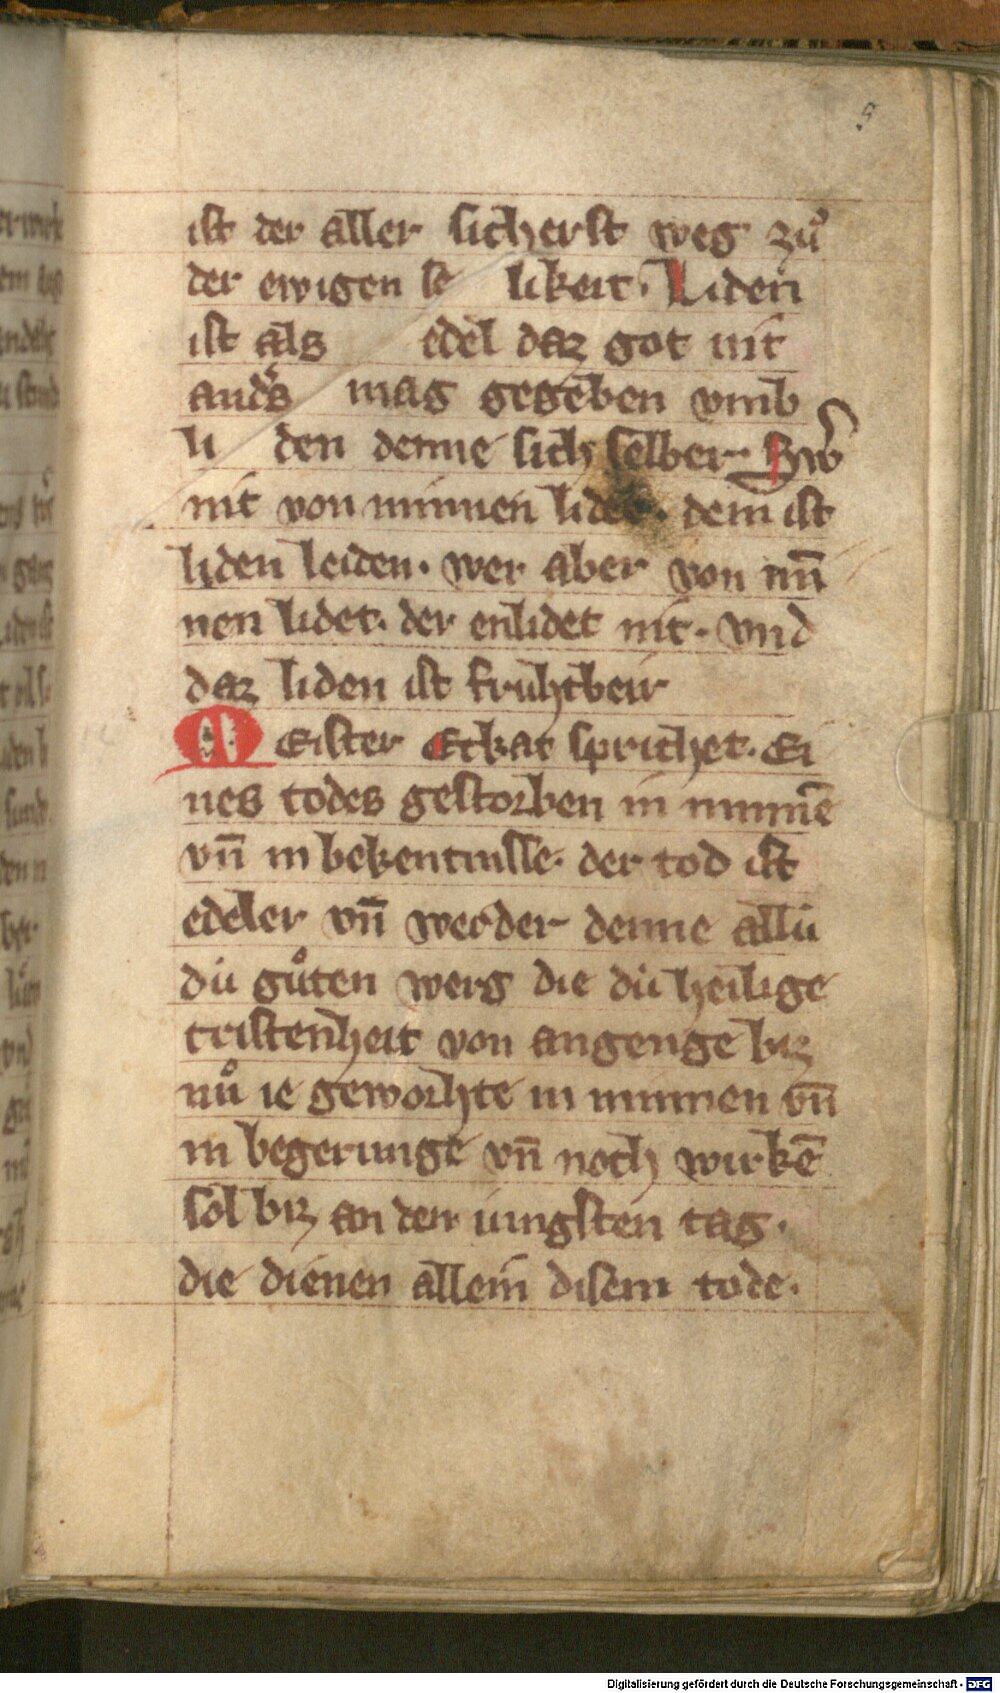 5
ist der aller sicherst weg zuͦ
der ewigen se likeit. Liden
ist als edel daz got nit
anders mag gegeben vmb
li den denne sich selber. Swer
nit von minnen lidet. dem ist
liden leiden. wer aber von min̄
nen lidet. der enlidet nit. vnd
daz liden ist fruhtbeir
Meister Eckat sprichet. Ei
nes todes gestorben in minnē
vn̄ in bekentnisse. der tod ist
edeler vn̄ werder denne allü
dü guͦten werg die dü heilige
cristenheit von angenge biz
nuͦ ie geworhte in minnen vn̄
in begerunge vn̄ noch wirkē
sol biz an den iungsten tag.
die dienen allein disem tode.
Digitalisierung gefördert durch die Deutsche Forschungsgemeinschaft - DFG